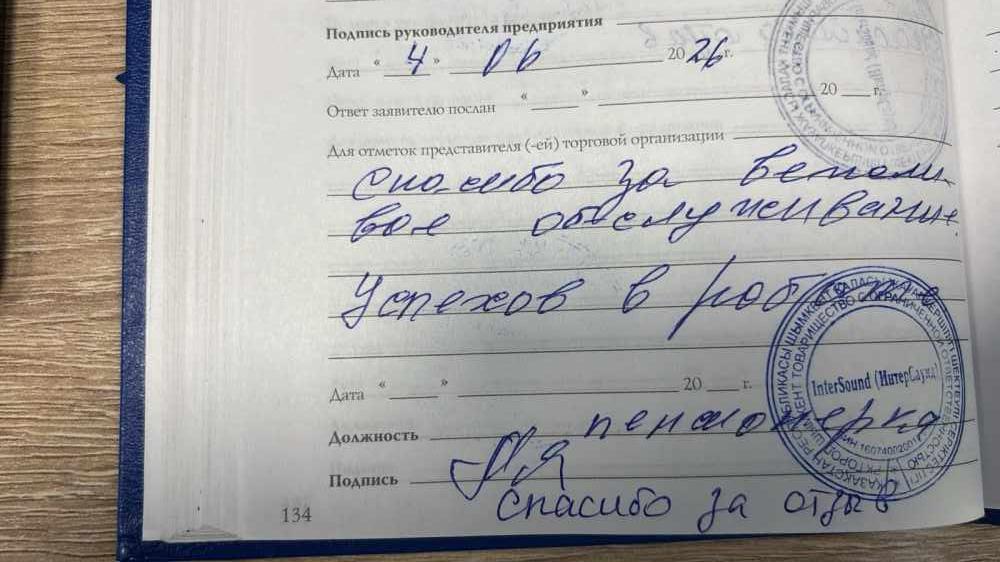 Подпись руководителя предприятия
Дата « 4 » 06 2026 г.
Ответ заявителю послан « » 20 г.
Для отметок представителя (-ей) торговой организации
Спасибо за вежли
вое обслуживание.
Успехов в работе
Дата « » 20 г.
InterSound (ИнтерСаунд)
Должность пенсионерка
Подпись
Спасибо за отзыв
134